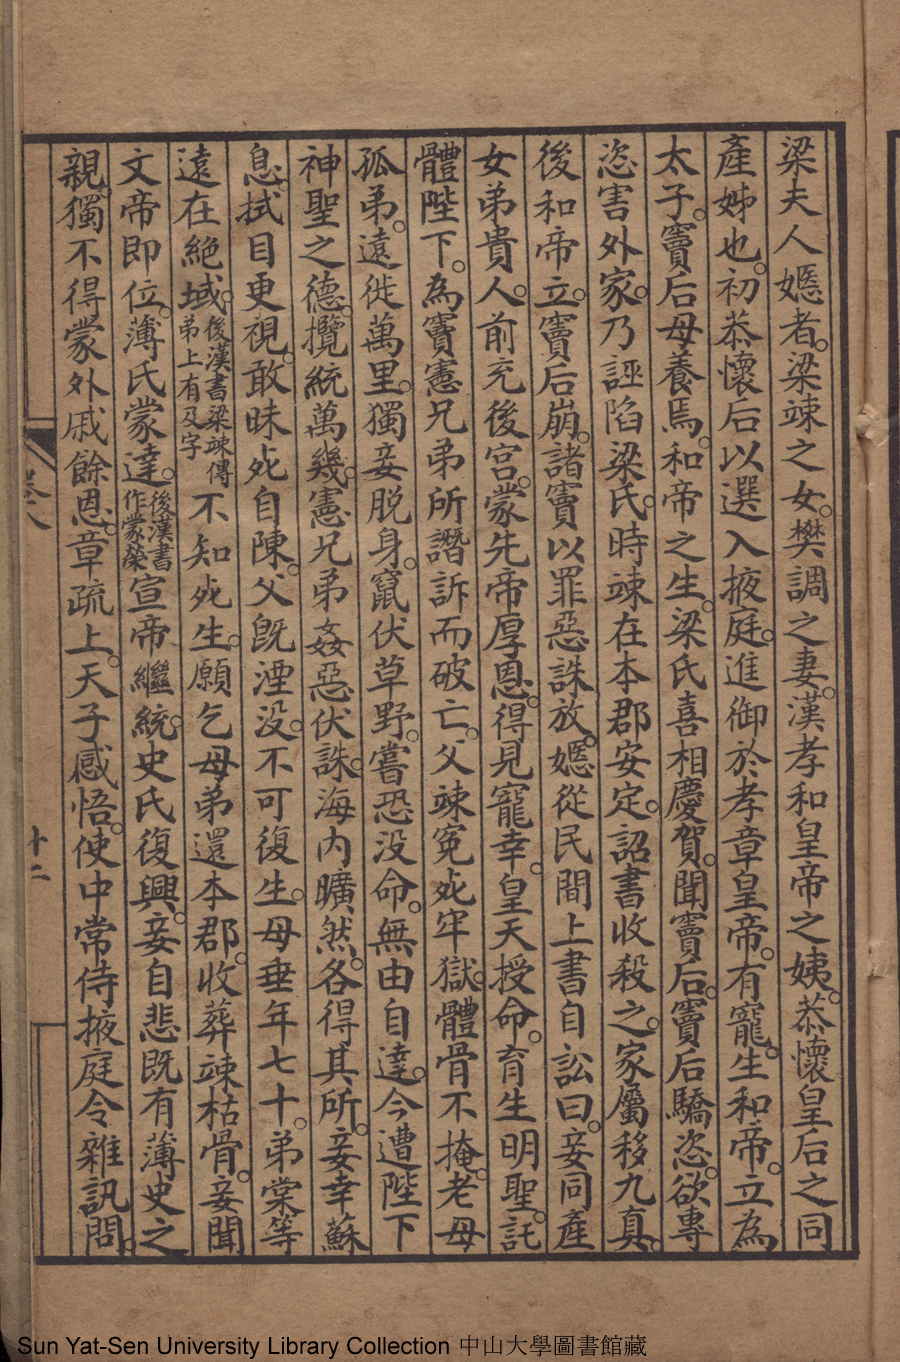 梁夫人嫕者。梁竦之女。樊調之妻。漢孝和皇帝之姨。恭懷皇后之同
產姊也。初恭懷后以選入掖庭。進御於孝章皇帝。有寵。生和帝。立為
太子。竇后母養焉。和帝之生。梁氏喜相慶賀。聞竇后。竇后驕恣。欲專
恣害外家。乃誣陷梁氏。時竦在本郡安定。詔書收殺之。家屬移九真。
後和帝立。竇后崩。諸竇以罪惡誅放。嫕從民間上書自訟曰。妾同產
女弟貴人。前充後宮。蒙先帝厚恩。得見寵幸。皇天授命。育生明聖。託
體陛下。為竇憲兄弟所譖訴而破亡。父竦冤死牢獄。體骨不掩。老母
孤弟。遠徙萬里。獨妾脫身。竄伏草野。嘗恐没命。無由自達。今遭陛下
神聖之德。攬統萬幾。憲兄弟姦惡伏誅。海内曠然。各得其所。妾幸蘇
息。拭目更視。敢昧死自陳。父既湮没。不可復生。母垂年七十。弟棠等
遠在絕域。後漢書梁竦傳弟上有及字不知死生。願乞母弟還本郡。收葬竦枯骨。妾聞
文帝即位。薄氏蒙達。後漢書作蒙榮宣帝繼統。史氏復興。妾自悲既有薄史之
親。獨不得蒙外戚餘恩。章疏上。天子感悟。使中常侍掖庭令雜訊問。
卷八
十二
Sun Yat-Sen University Library Collection 中山大學圖書館藏